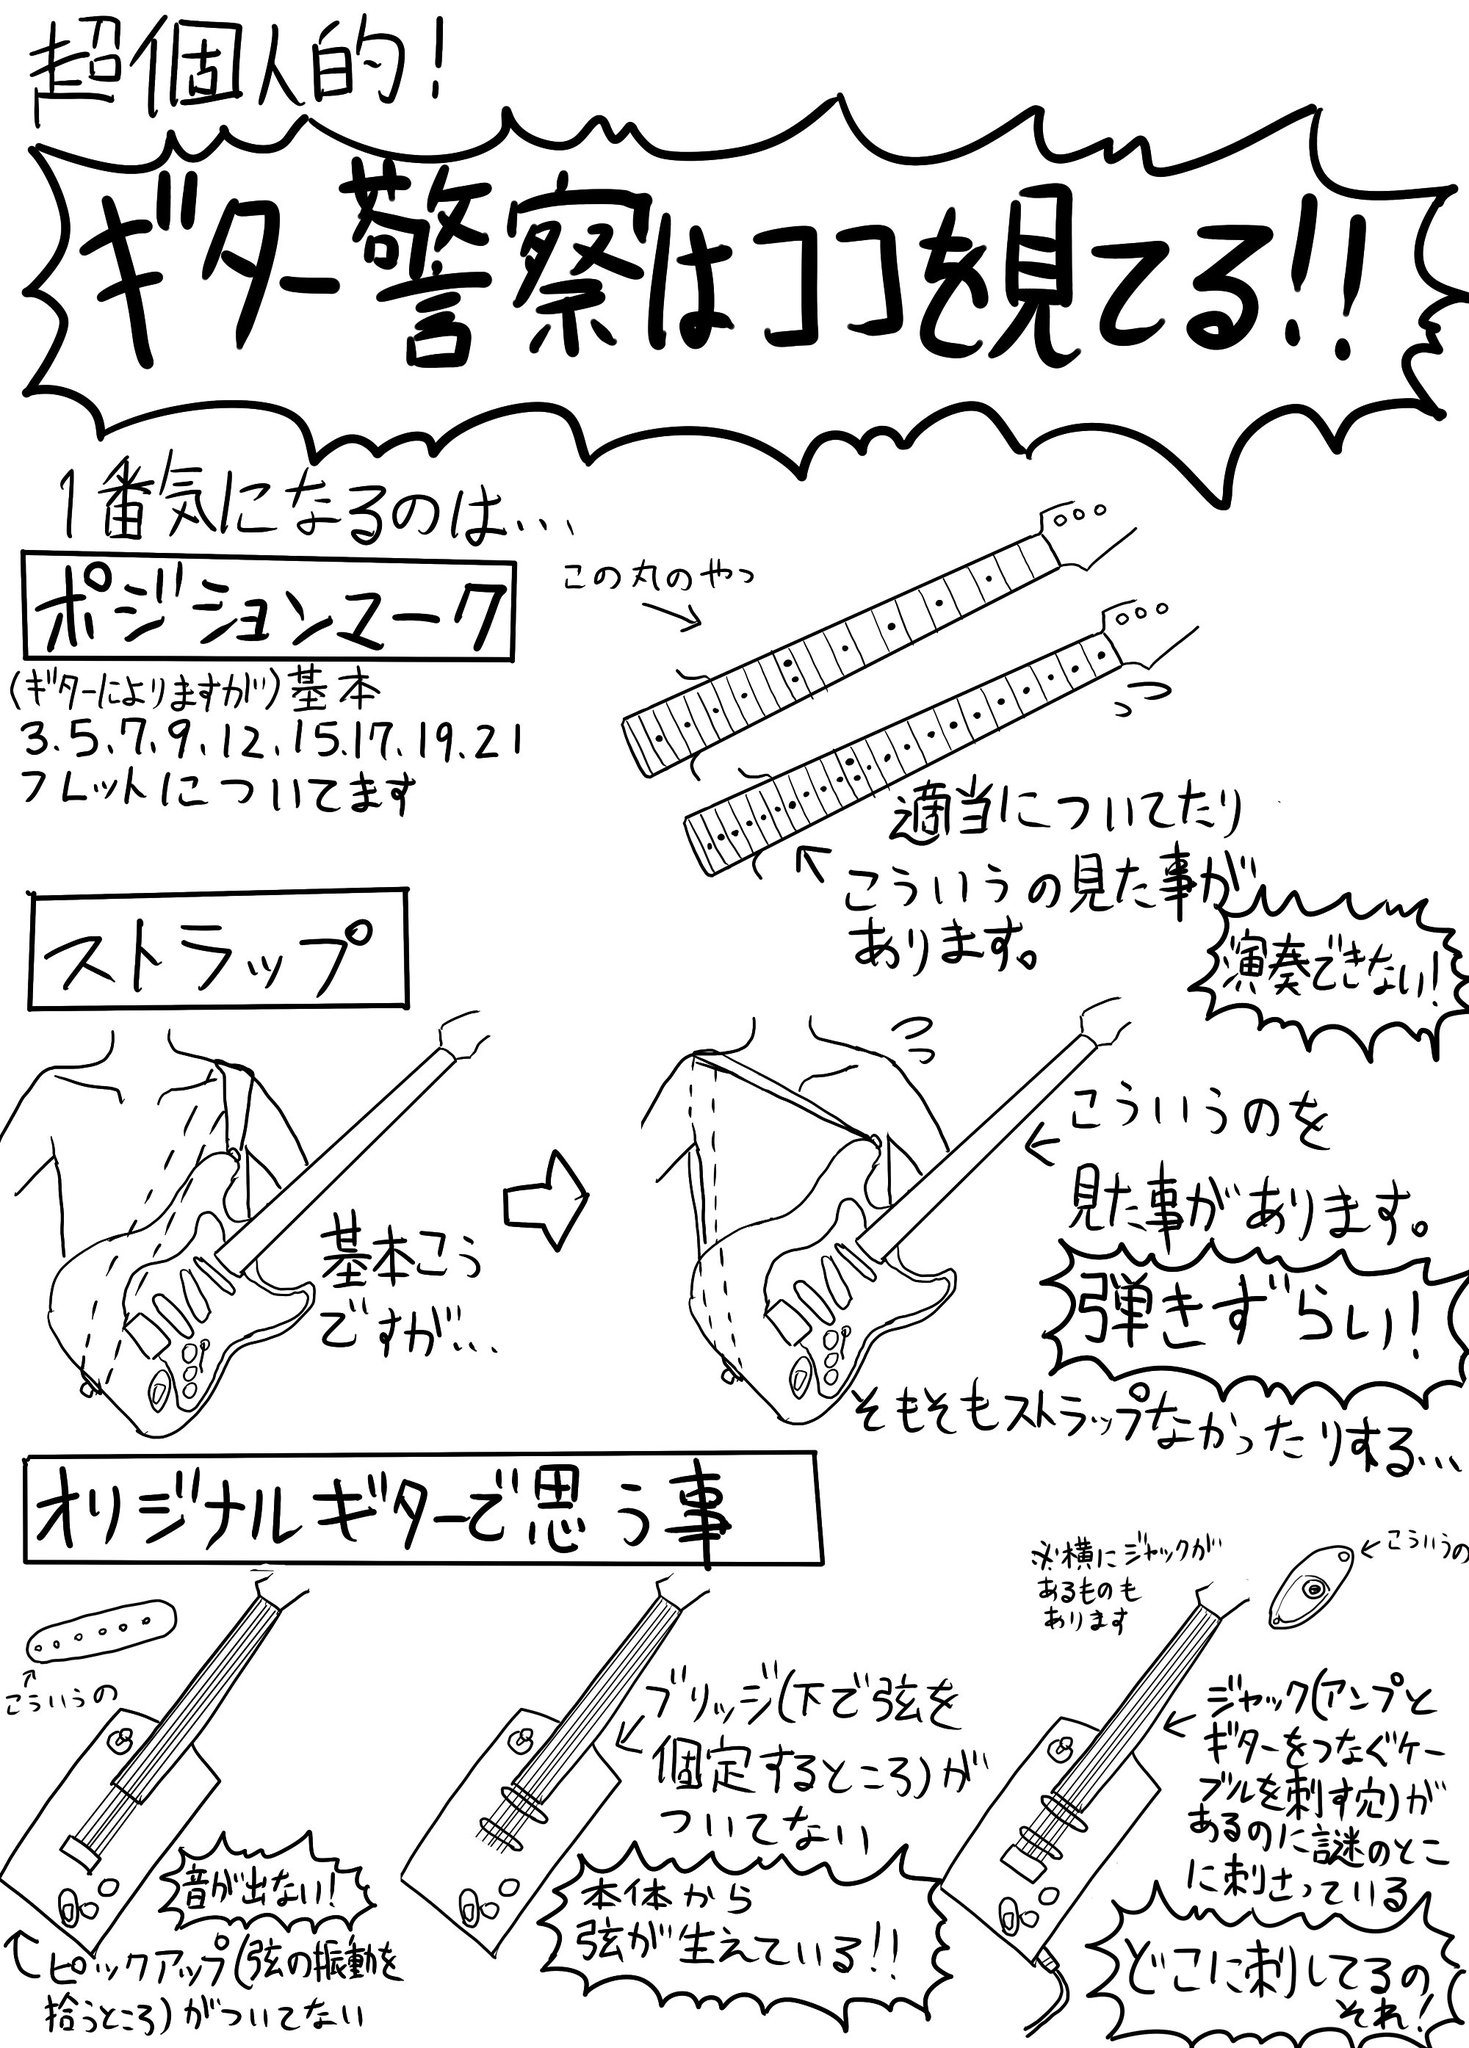 超個人的!
ギター警察はココを見てる!!
1番気になるのは…
ポジションマーク
この丸のやつ
(ギターによりますが)基本
3.5.7.9.12.15.17.19.21
フレットについてます
適当についてたり
こういうの見た事が
あります。
演奏できない!
ストラップ
基本こう
ですが…
こういうのを
見た事があります。
弾きずらい!
そもそもストラップなかったりする…
オリジナルギターで思う事
こういうの
音が出ない!
ピックアップ(弦の振動を
拾うところ)がついてない
ブリッジ(下で弦を
個定するところ)が
ついてない
本体から
弦が生えている!!
※横にジャックが
あるものも
あります
こういうの
ジャック(アンプと
ギターをつなぐケー
ブルを刺す穴)が
あるのに謎のとこ
に刺さっている
どこに刺してるの
それ!